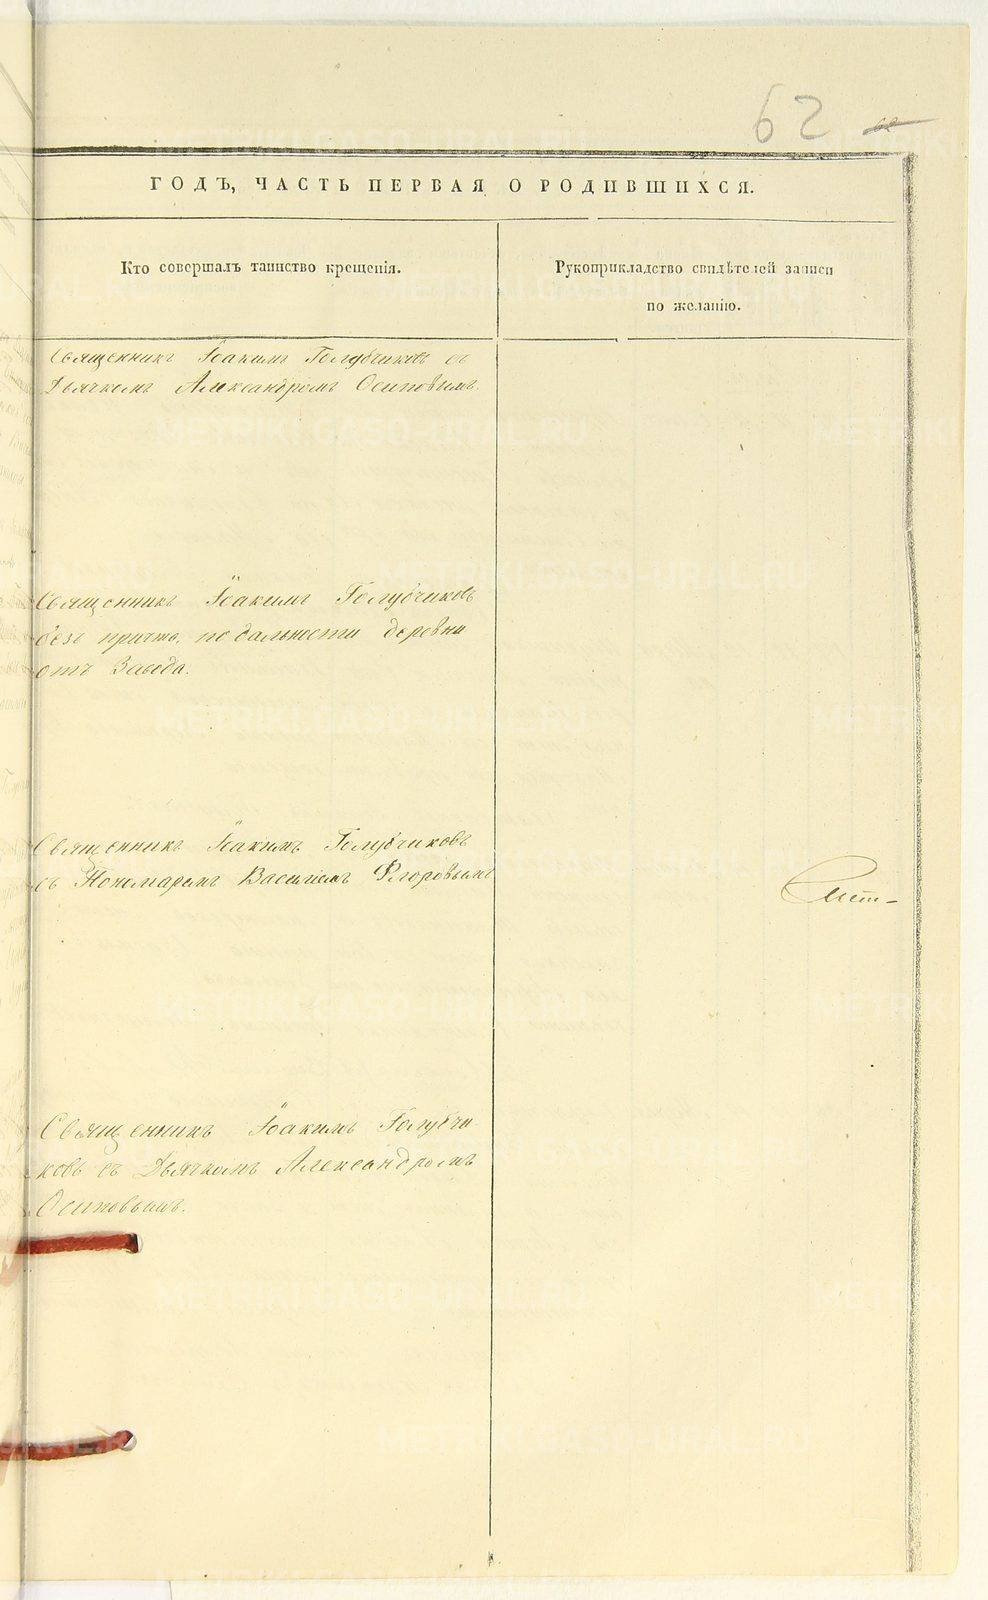 62
62
ГОДЪ, ЧАСТЬ ПЕРВАЯ О РОДИВШИХСЯ.
Кто совершалъ таинство крещенія.
Рукоприкладство свидѣтелей записи
по желанію.
Священникъ Іоакимъ Голубчиковъ съ
Дьячкомъ Александромъ Осиповымъ.
Священникъ Іоакимъ Голубчиковъ
безъ причта, по дальности деревни
отъ Завода.
Священникъ Іоакимъ Голубчиковъ
съ Пономаремъ Василіемъ Флоровымъ
Священникъ Іоакимъ Голубчи
ковъ съ Дьячкомъ Александромъ
Осиповымъ.
METRIKI.GASO-URAL.RU